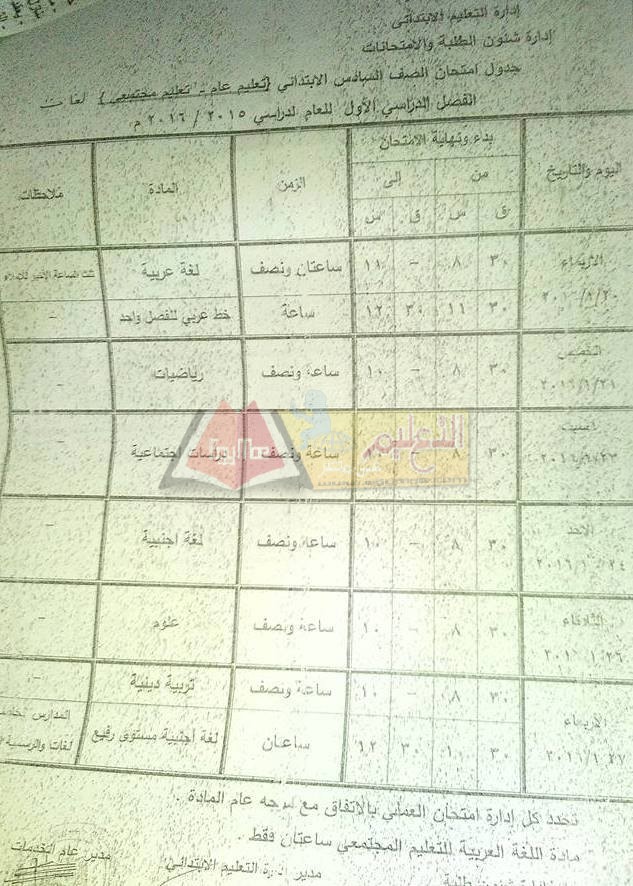 إدارة التعليم الابتدائى
إدارة شئون الطلبة والامتحانات
جدول امتحان الصف السادس الابتدائي (تعليم عام - تعليم مجتمعي) لغات
الفصل الدراسي الأول للعام الدراسي ٢٠١٥ / ٢٠١٦ م
اليوم والتاريخ بدء ونهاية الامتحان الزمن المادة ملاحظات
من إلى
ق س ق س
الأربعاء ٣٠ ٨ - ١١ ساعتان ونصف لغة عربية ثلث الساعة الأخير للإملاء
٣٠ ١١ ٣٠ ١٢ ساعة خط عربي للفصل واحد -
الخميس ٢٠١٦/١/٢١ ٣٠ ٨ - ١٠ ساعة ونصف رياضيات -
السبت ٣٠ ٨ - ١٠ ساعة ونصف دراسات اجتماعية -
التعليم
الأحد ٣٠ ٨ - ١٠ ساعة ونصف لغة أجنبية -
الثلاثاء ٣٠ ٨ - ١٠ ساعة ونصف علوم -
الأربعاء ٣٠ ٨ - ١٠ ساعة ونصف تربية دينية -
٣٠ ١٠ ٣٠ ١٢ ساعتان لغة أجنبية مستوى رفيع المدارس الخاصة لغات والرسمية
تحدد كل إدارة امتحان العملي بالاتفاق مع موجه عام المادة .
مادة اللغة العربية للتعليم المجتمعي ساعتان فقط .
مدير إدارة التعليم الابتدائي مدير عام الخدمات